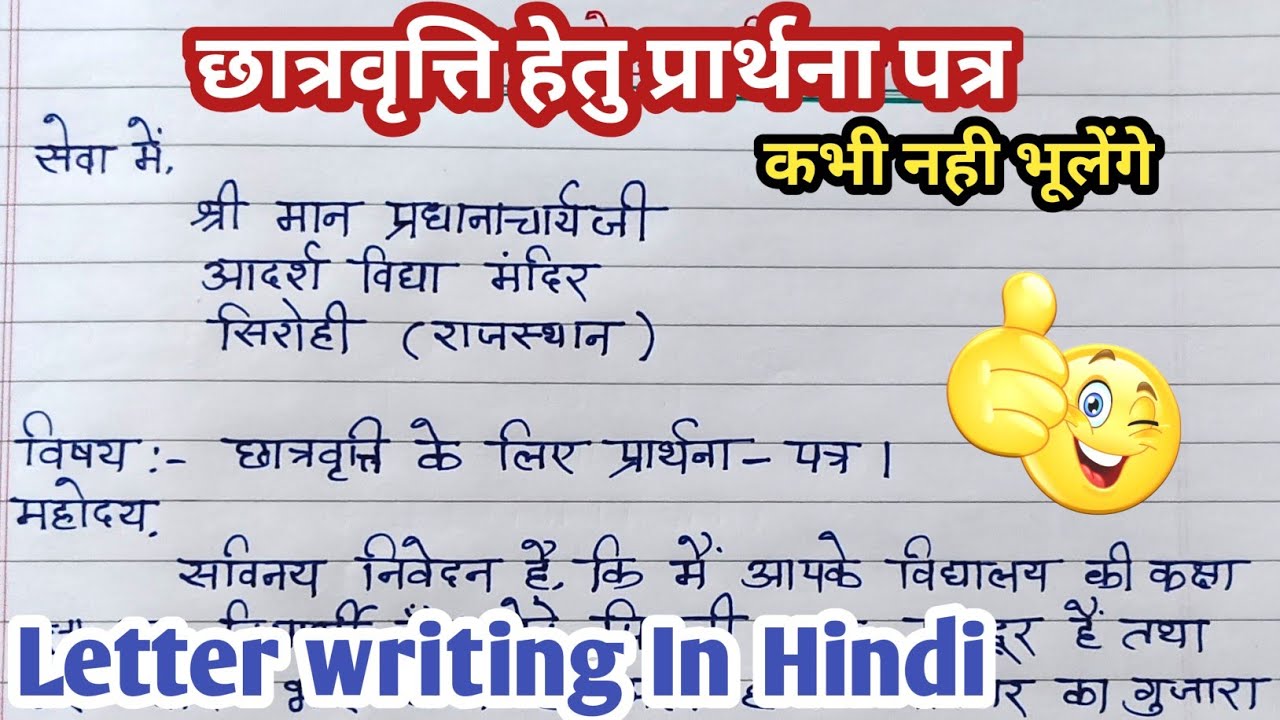 छात्रवृत्ति हेतु प्रार्थना पत्र
कभी नही भूलेंगे
सेवा में,
श्री मान प्रधानाचार्य जी
आदर्श विद्या मंदिर
सिरोही (राजस्थान)
विषय :- छात्रवृत्ति के लिए प्रार्थना - पत्र ।
महोदय,
सविनय निवेदन है, कि मैं आपके विद्यालय की कक्षा
हैं तथा
का गुजारा
Letter writing In Hindi